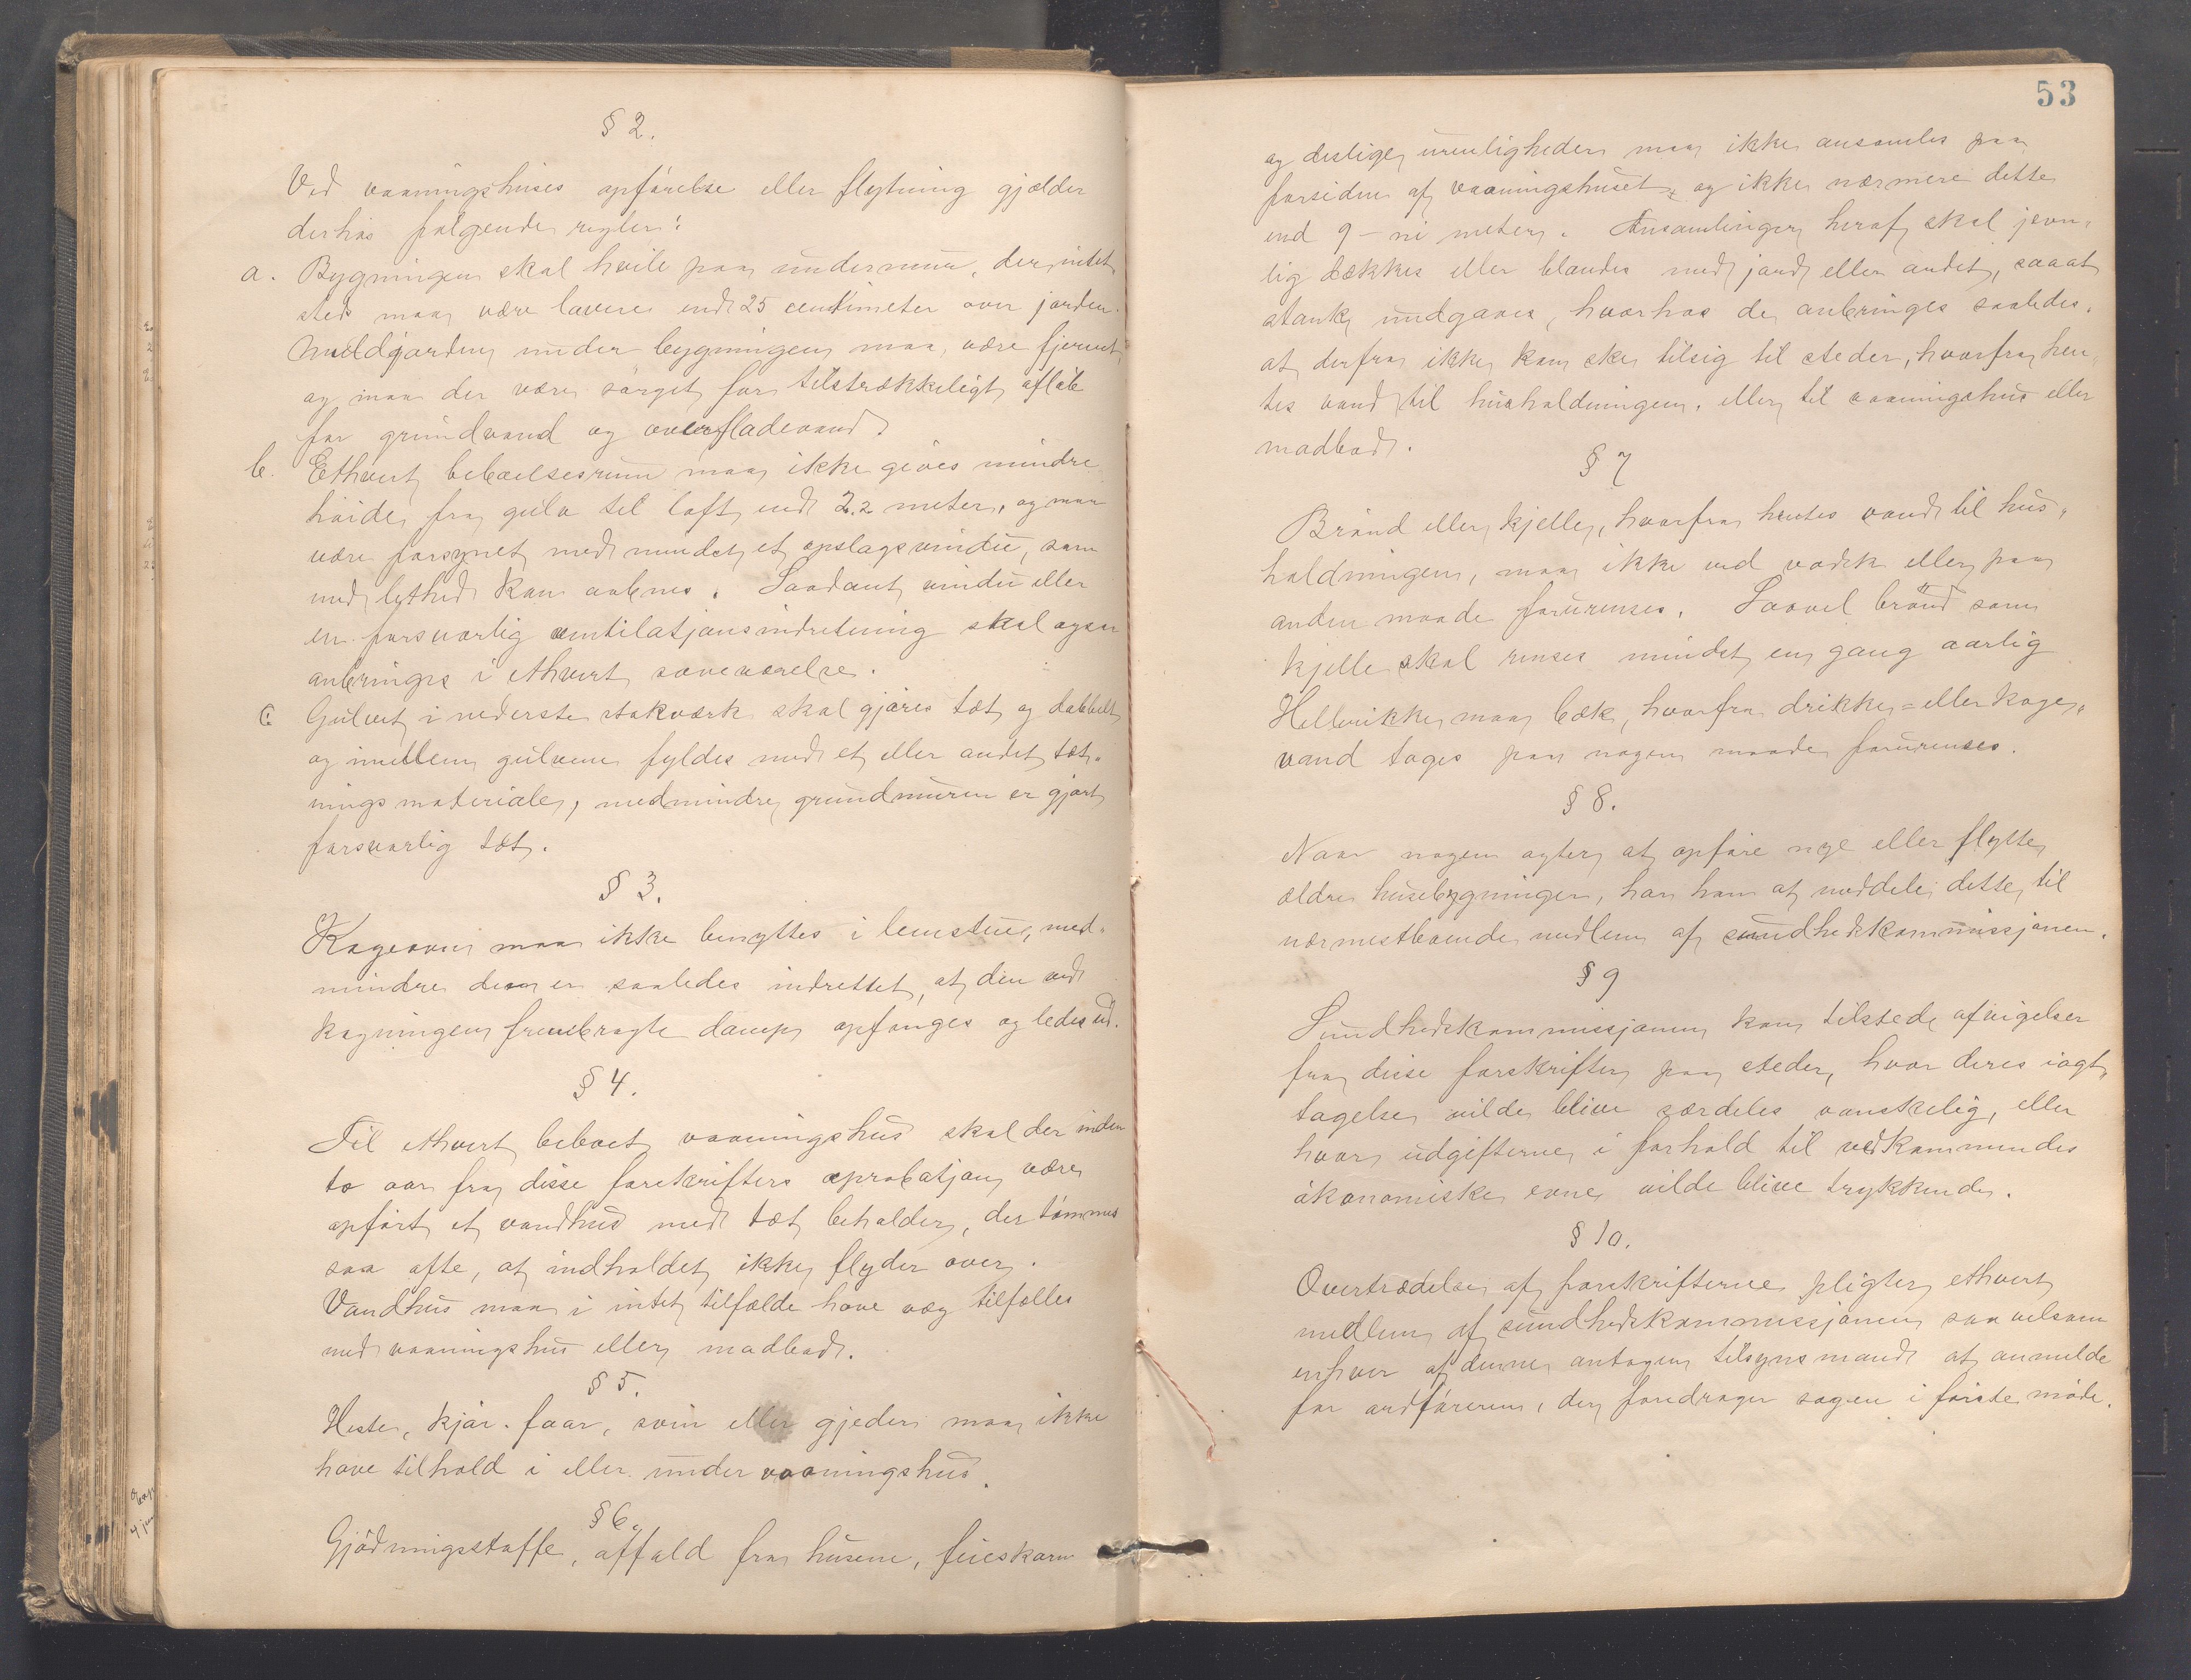 § 2.
Ved vaaningshuses opførelse eller flytning gjælder
derhos følgende regler:
a. Bygningen skal hvile paa undermur, der intet
sted maa være lavere end 25 centimeter over jorden.
Muldjorden under bygningen maa være fjernet,
og maa der være sørget for tilstrækkeligt afløb
for grundvand og overfladevand.
b. Ethvert beboelsesrum maa ikke gives mindre
høide fra gulv til loft end 2.2 meter, og maa
være forsynet med mindst et opslagsvindu, som
med lethed kan aabnes. Saadant vindu eller
en forsvarlig ventilatjonsindretning skal ogsaa
anbringes i ethvert soveværelse.
c. Gulvet i nederste stokværk skal gjøres tæt og dobbelt
og imellem gulvene fyldes med et eller andet tæt-
ningsmateriale, medmindre grundmuren er gjort
forsvarlig tæt.
§ 3.
Kogeovn maa ikke benyttes i lemstue, med-
mindre den er saaledes indrettet, at den ved
kogningen frembragte damp opfanges og ledes ud.
§ 4.
Til ethvert beboet vaaningshus skal der inden
to aar fra disse forskrifters aprobatjon være
opført et vandhus med tæt beholder, der tømmes
saa ofte, at indholdet ikke flyder over.
Vandhus maa i intet tilfælde have væg tilfælles
med vaaningshus eller madbod.
§ 5.
Heste, kjør, faar, svin eller gjeder maa ikke
have tilhold i eller under vaaningshus.
§ 6.
Gjødningsstoffe, affald fra husene, feieskarn
53
og deslige urenligheder maa ikke ansamles paa
forsiden af vaaningshuset og ikke nærmere dette
end 9 – ni meter. Ansamlinger heraf skal jevn-
lig dækkes eller blandes med jord eller andet, saaat
stank undgaaes, hvorhos de anbringes saaledes,
at derfra ikke kan ske tilsig til steder, hvorfra hen-
tes vand til husholdningen, eller til vaaningshus eller
madbod.
§ 7
Brønd eller kjelle, hvorfra hentes vand til hus-
holdningen, maa ikke ved vadsk eller paa
anden maade forurenses. Saavel brønd som
kjelle skal renses mindst en gang aarlig
Hellerikke maa bæk, hvorfra drikke= eller koge-
vand tages paa nogen maade forurenses.
§ 8.
Naar nogen agter at opføre nye eller flytte
ældre husebygninger, har han at meddele dette til
nærmestboende medlem af sundhedskommissjonen.
§ 9
Sundhedskommissjonen kan tilstede afvigelser
fra disse forskrifter paa steder, hvor deres iagt-
tagelse vilde blive særdeles vanskelig, eller
hvor udgifterne i forhold til vedkommendes
økonomiske evne vilde blive trykkende.
§ 10.
Overtrædelse af forskrifterne pligter ethvert
medlem af sundhedskommissjonen saavelsom
enhver af denne antagen tilsynsmand at anmelde
for ordføreren, der foredrager sagen i første møde.